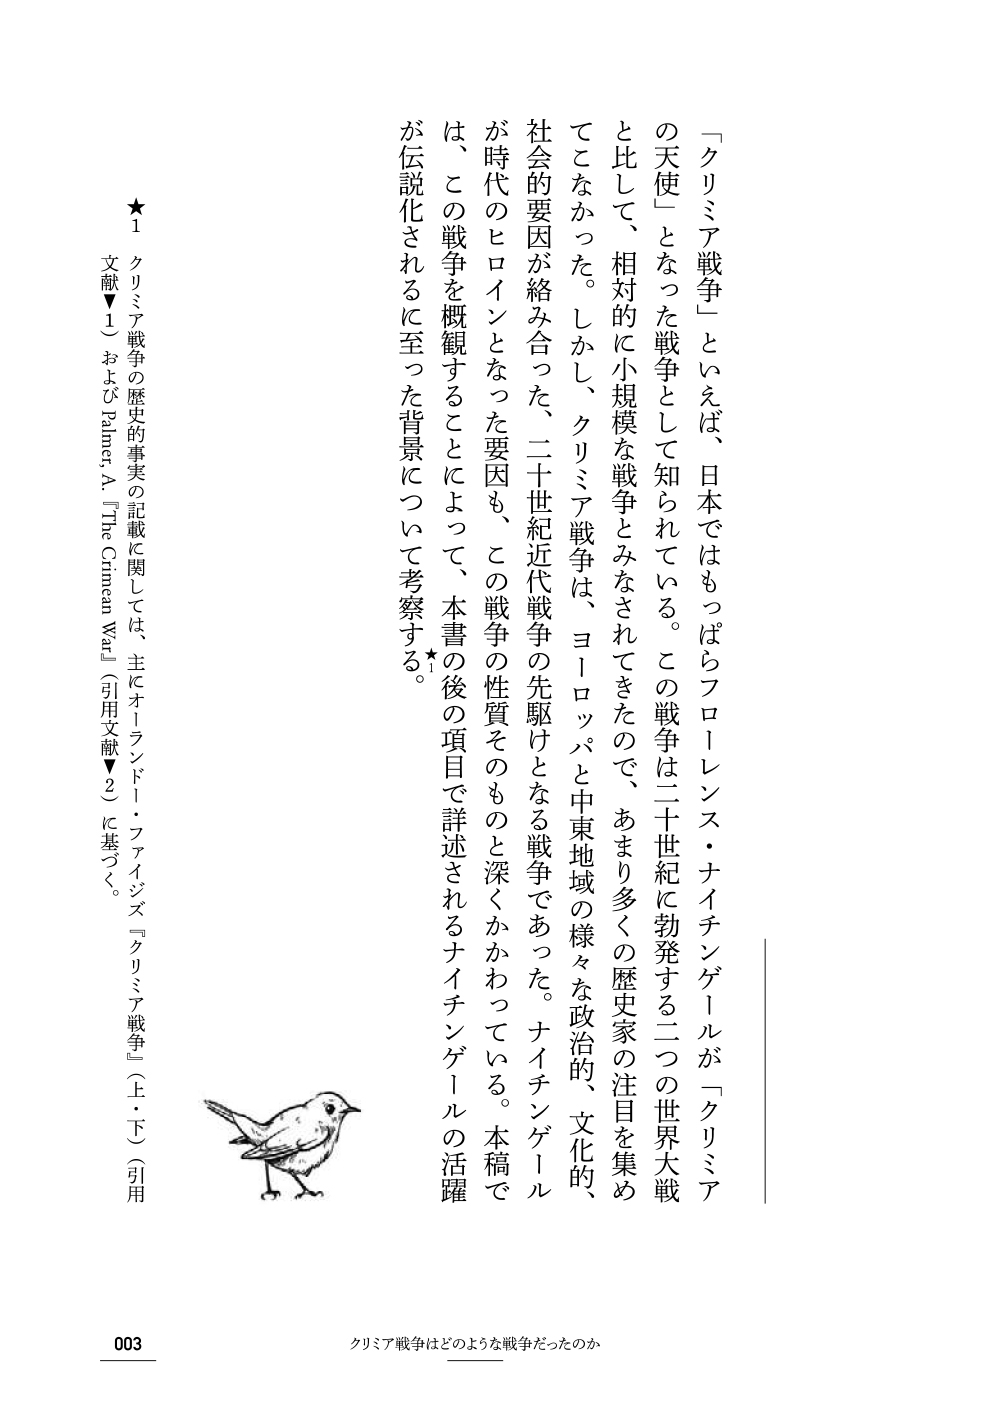 「クリミア戦争」といえば、日本ではもっぱらフローレンス・ナイチンゲールが「クリミア
の天使」となった戦争として知られている。この戦争は二十世紀に勃発する二つの世界大戦
と比して、相対的に小規模な戦争とみなされてきたので、あまり多くの歴史家の注目を集め
てこなかった。しかし、クリミア戦争は、ヨーロッパと中東地域の様々な政治的、文化的、
社会的要因が絡み合った、二十世紀近代戦争の先駆けとなる戦争であった。ナイチンゲール
が時代のヒロインとなった要因も、この戦争の性質そのものと深くかかわっている。本稿で
は、この戦争を概観することによって、本書の後の項目で詳述されるナイチンゲールの活躍
が伝説化されるに至った背景について考察する。★1
★1 クリミア戦争の歴史的事実の記載に関しては、主にオーランドー・ファイジズ『クリミア戦争』（上・下）（引用
文献▼1）および Palmer, A.『The Crimean War』（引用文献▼2）に基づく。
クリミア戦争はどのような戦争だったのか
003